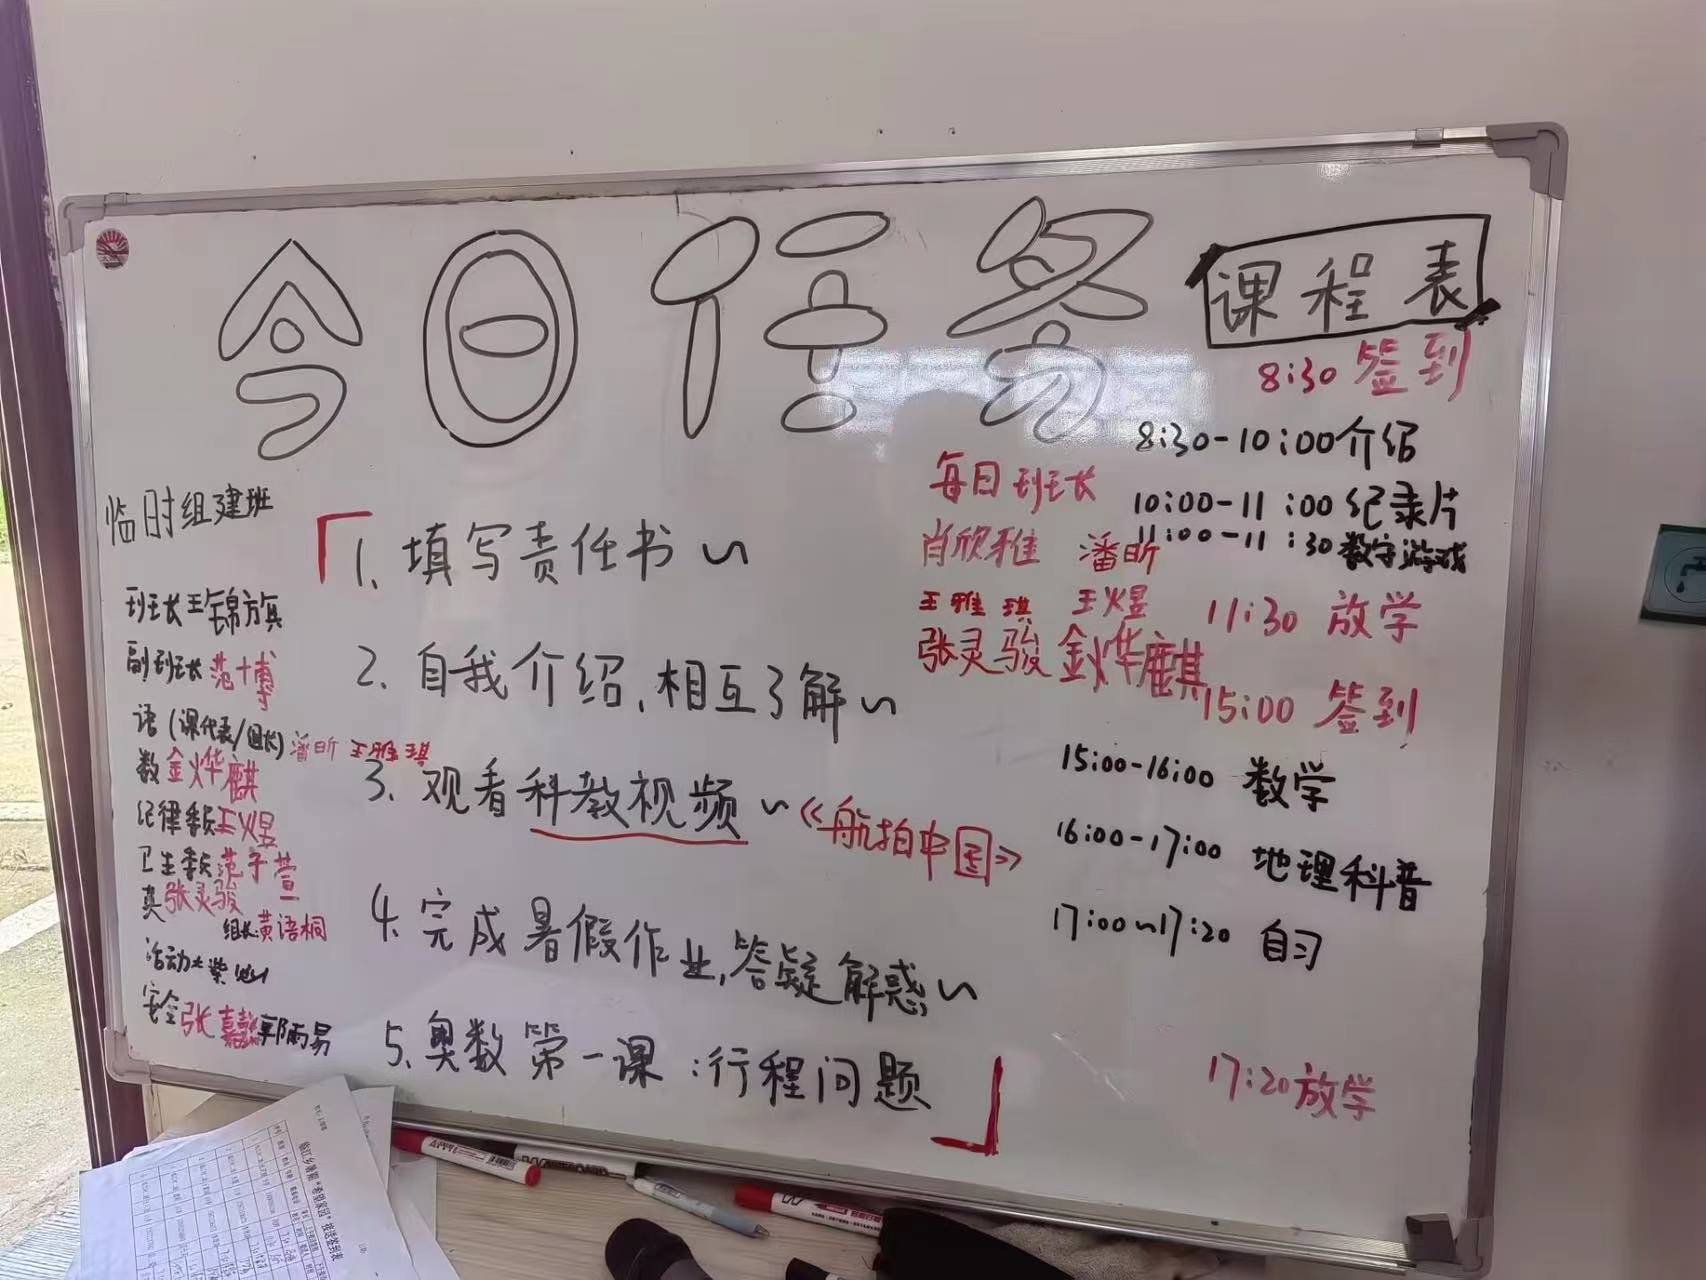 今日任务
课程表
8:30 签到
8:30-10:00 介绍
10:00-11:00 纪录片
11:00-11:30 数字游戏
11:30 放学
15:00 签到
15:00-16:00 数学
16:00-17:00 地理科普
17:00~17:20 自习
17:20 放学
每日班长
肖欣雅 潘昕
王雅琪 王煜
张灵骏 金烨麒
临时组建班
班长 王锦旗
副班长 范博
语(课代表/组长) 潘昕 王雅琪
数 金烨麒
纪律委员 王煜
卫生委员 范子萱
英 张灵骏
组长 黄语桐
活动
安全 张嘉懿 郭雨易
1、填写责任书~
2、自我介绍,相互了解~
3、观看科教视频~《航拍中国》
4、完成暑假作业,答疑解惑~
5、奥数第一课:行程问题